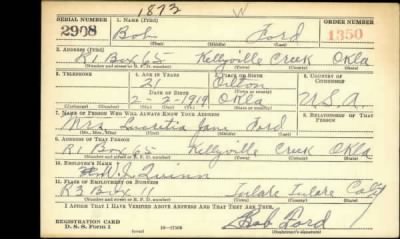 1873 W
SERIAL NUMBER 1. NAME (Print) ORDER NUMBER
2908 Bob Ford 1350
(First) (Middle) (Last)
2. ADDRESS (Print)
R1 Box 65 Kellyville Creek Okla
(Number and street or R. F. D. number) (Town) (County) (State)
3. TELEPHONE 4. AGE IN YEARS 5. PLACE OF BIRTH 6. COUNTRY OF CITIZENSHIP
21 Oilton
DATE OF BIRTH (Town or county)
2-2-1919 Okla U.S.A.
(Exchange) (Number) (Mo.) (Day) (Yr.) (State or country)
7. NAME OF PERSON WHO WILL ALWAYS KNOW YOUR ADDRESS 8. RELATIONSHIP OF THAT PERSON
Mrs Jane Ford
(Mr., Mrs., Miss) (First) (Middle) (Last)
9. ADDRESS OF THAT PERSON
R1 Box 65 Kellyville Creek Okla
(Number and street or R. F. D. number) (Town) (County) (State)
10. EMPLOYER'S NAME
W. L. Quinn
11. PLACE OF EMPLOYMENT OR BUSINESS
R3 Box 11 Tulare Tulare
(Number and street or R. F. D. number) (Town) (County) (State)
I AFFIRM THAT I HAVE VERIFIED ABOVE ANSWERS AND THAT THEY ARE TRUE.
REGISTRATION CARD
D. S. S. Form 1 Bob Ford
(over) (Registrant's signature)